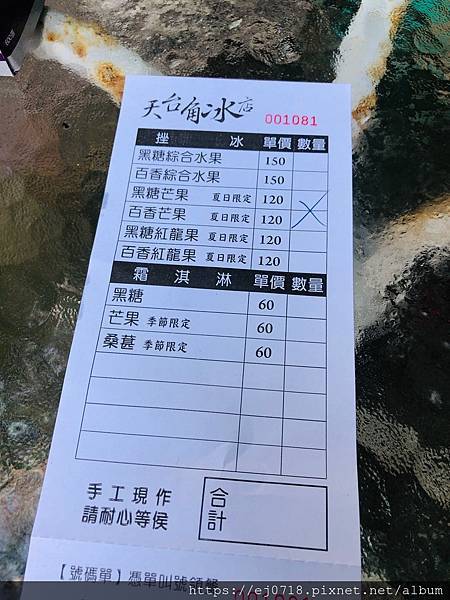 天台角冰店
001081
挫冰 單價 數量
黑糖綜合水果 150
百香綜合水果 150
黑糖芒果 夏日限定 120
百香芒果 夏日限定 120
黑糖紅龍果 夏日限定 120
百香紅龍果 夏日限定 120
霜淇淋 單價 數量
黑糖 60
芒果 季節限定 60
桑葚 季節限定 60
手工現作
請耐心等侯
合計
【號碼單】憑單叫號領餐
https://ej0718.pixnet.net/album